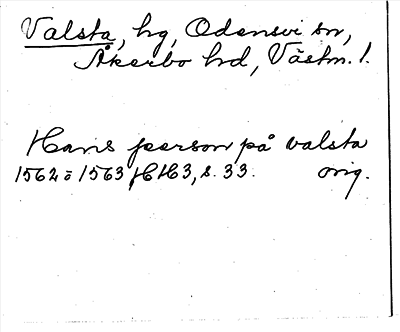 Valsta, hg, Odensvi sn,
Åkerbo hd, Västm. l.
Hans person på valsta
1562 ō 1563 HH3, s. 33. orig.